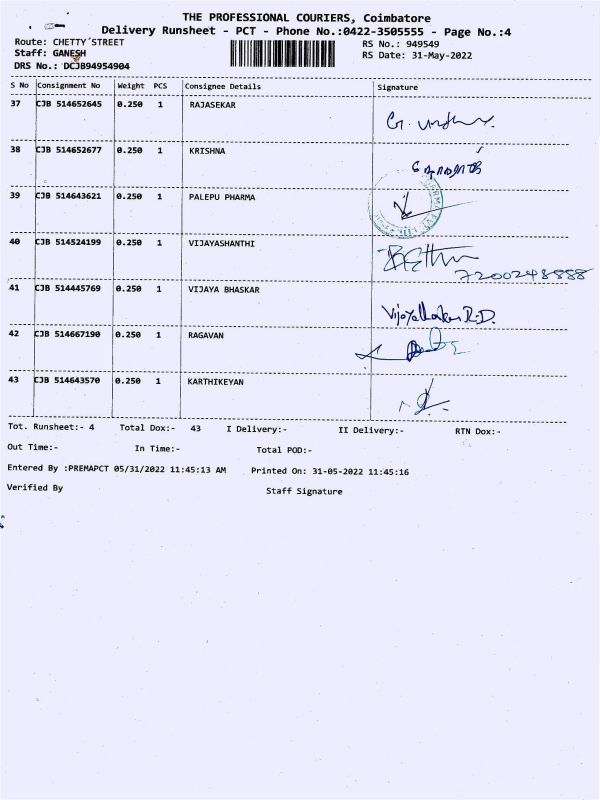 THE PROFESSIONAL COURIERS, Coimbatore
Delivery Runsheet - PCT - Phone No.:0422-3505555 - Page No.:4
Route: CHETTY STREET RS No.: 949549
Staff: GANESH RS Date: 31-May-2022
DRS No.: DCJB94954904
S No Consignment No Weight PCS Consignee Details Signature
37 CJB 514652645 0.250 1 RAJASEKAR
38 CJB 514652677 0.250 1 KRISHNA
39 CJB 514643621 0.250 1 PALEPU PHARMA
40 CJB 514524199 0.250 1 VIJAYASHANTHI
7200248888
41 CJB 514445769 0.250 1 VIJAYA BHASKAR
42 CJB 514667190 0.250 1 RAGAVAN
43 CJB 514643570 0.250 1 KARTHIKEYAN
Tot. Runsheet:- 4 Total Dox:- 43 I Delivery:- II Delivery:- RTN Dox:-
Out Time:- In Time:- Total POD:-
Entered By :PREMAPCT 05/31/2022 11:45:13 AM Printed On: 31-05-2022 11:45:16
Verified By Staff Signature